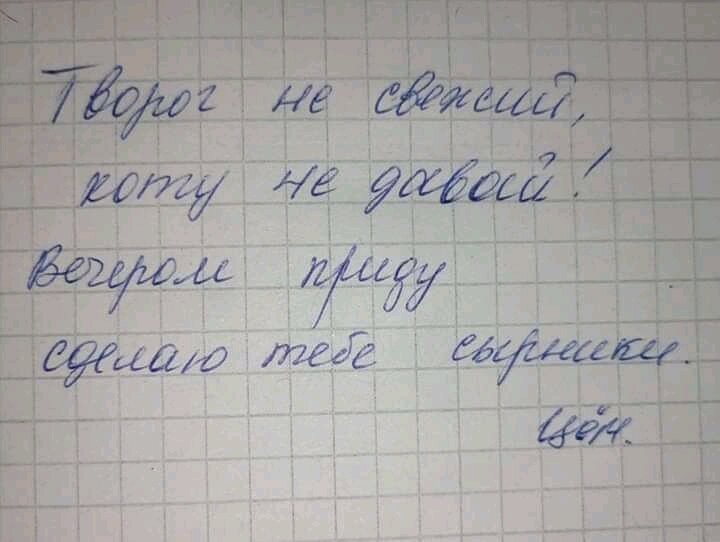 Творог не свежий,
коту не давай!
Вечером приду
сделаю тебе сырники.
Цём.